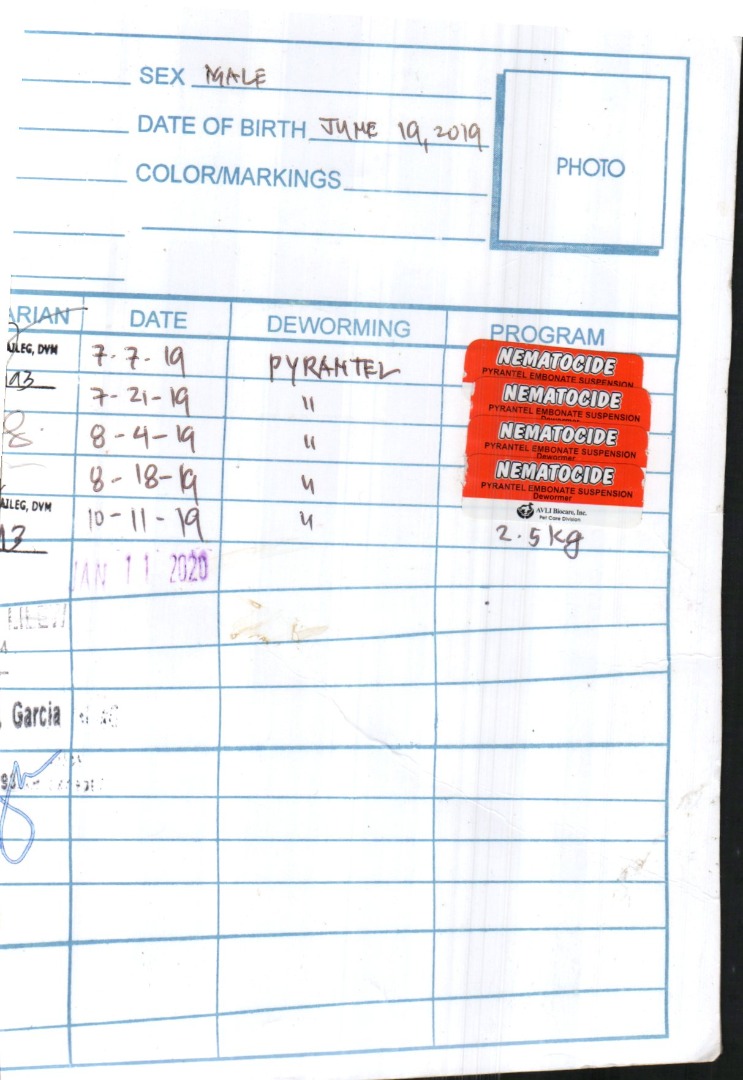 SEX MALE
DATE OF BIRTH JUNE 19, 2019
COLOR/MARKINGS
PHOTO
ARIAN DATE DEWORMING PROGRAM
AJLEG, DVM 7-7-19 PYRANTEL NEMATOCIDE
PYRANTEL EMBONATE SUSPENSION
7-21-19 " NEMATOCIDE
PYRANTEL EMBONATE SUSPENSION
Dewormer
8-4-19 " NEMATOCIDE
PYRANTEL EMBONATE SUSPENSION
Dewormer
8-18-19 " NEMATOCIDE
PYRANTEL EMBONATE SUSPENSION
Dewormer
AJLEG, DVM 10-11-19 " AVLI Biocare, Inc.
Pet Care Division
2.5kg
JAN 11 2020
Garcia